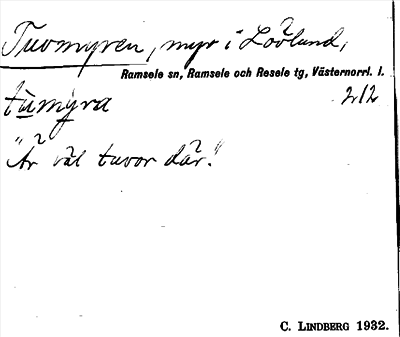 Tuvmyren, myr i Lövlund,
Ramsele sn, Ramsele och Resele tg, Västernorrl. l.
tùmỳra 212
"Är väl tuvor där."
C. LINDBERG 1932.